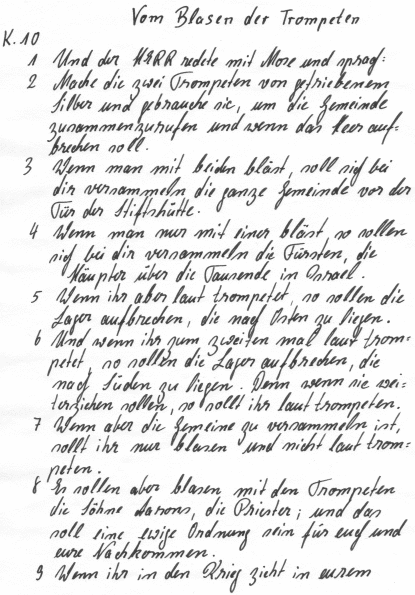 Vom Blasen der Trompeten
K. 10
1 Und der HERR redete mit Mose und sprach:
2 Mache die zwei Trompeten von getriebenem
Silber und gebrauche sie, um die Gemeinde
zusammenzurufen und wenn das Heer auf-
brechen soll.
3 Wenn man mit beiden bläst, soll sich bei
dir versammeln die ganze Gemeinde vor der
Tür der Stiftshütte.
4 Wenn man nur mit einer bläst, so sollen
sich bei dir versammeln die Fürsten, die
Häupter über die Tausende in Israel.
5 Wenn ihr aber laut trompetet, so sollen die
Lager aufbrechen, die nach Osten zu liegen.
6 Und wenn ihr zum zweiten mal laut trom=
petet, so sollen die Lager aufbrechen, die
nach Süden zu liegen. Denn wenn sie wei=
terziehen sollen, so sollt ihr laut trompeten.
7 Wenn aber die Gemeine zu versammeln ist,
sollt ihr nur blasen und nicht laut trom=
peten.
8 Es sollen aber blasen mit den Trompeten
die Söhne Aarons, die Priester; und das
soll eine ewige Ordnung sein für euch und
eure Nachkommen.
9 Wenn ihr in den Krieg zieht in eurem